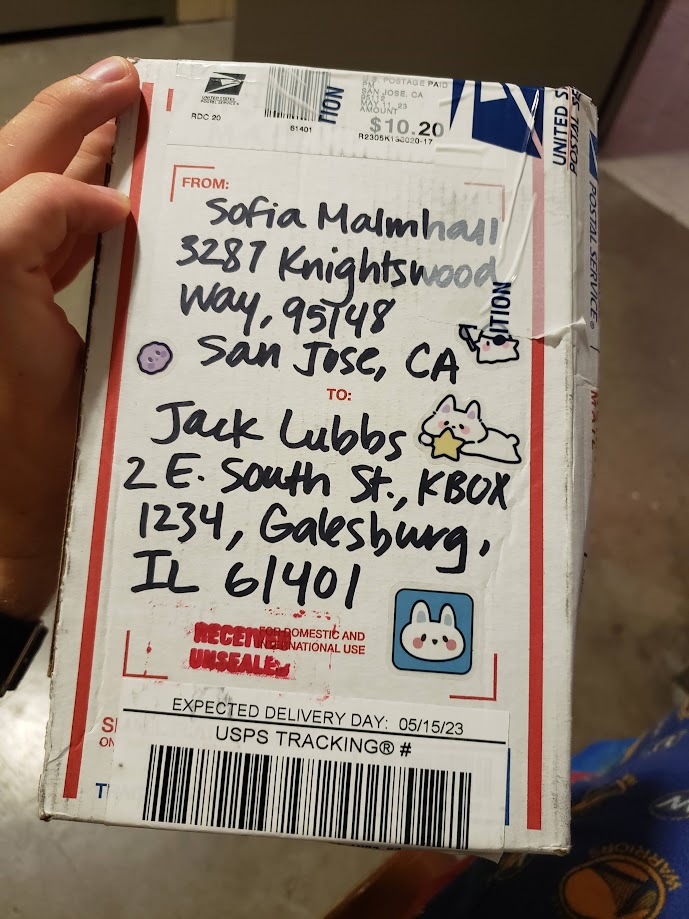 UNITED STATES
POSTAL SERVICE®
RDC 20
61401
U.S. POSTAGE PAID
PM
SAN JOSE, CA
95112
MAY 11, 23
AMOUNT
$10.20
UNITED S
POSTAL
POSTAL SERVICE®
FROM:
Sofia Malmhall
3287 Knightswood
Way, 95148
San Jose, CA
ITION
TO:
Jack Lubbs
2 E. South St., KBOX
1234, Galesburg,
IL 61401
RECEIVED
UNSEALED
FOR DOMESTIC AND
INTERNATIONAL USE
EXPECTED DELIVERY DAY: 05/15/23
USPS TRACKING® #
WARRIORS